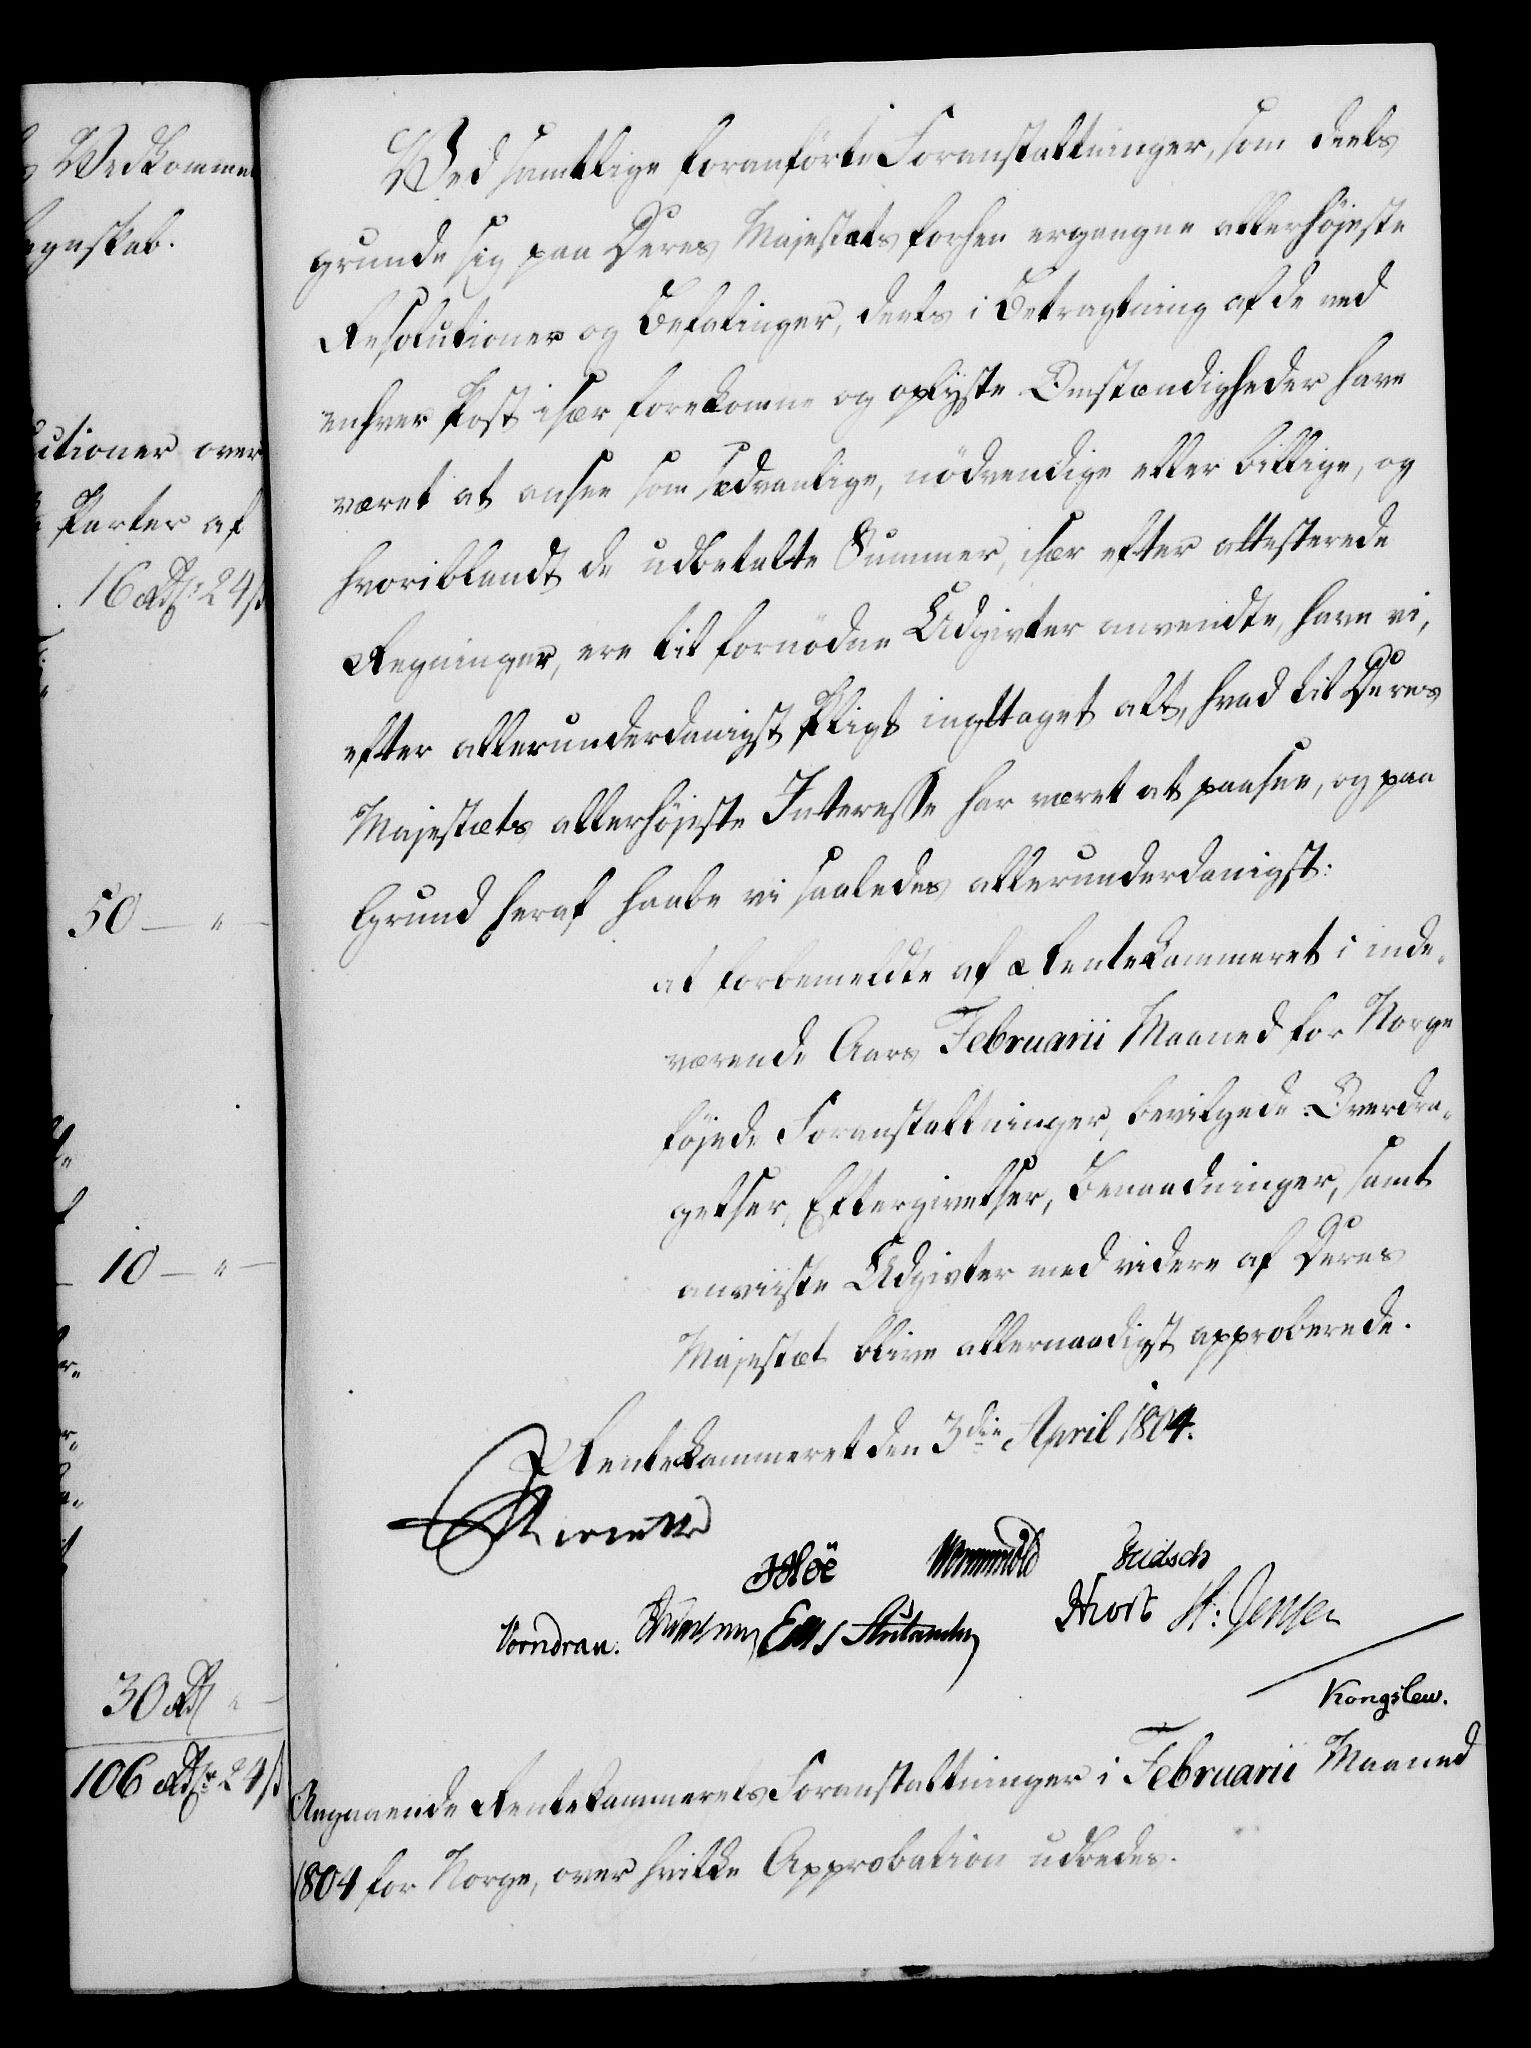 Vedkomme
egnskab.
utioner over
Parter af
16 Rdr 24 s
50 — " —
10 — " —
30 Rd " —
106 Rdr 24 s
Ved samtlige foranførte Foranstaltninger, som deels
grunde sig paa Deres Majestæts forhen ergangne allerhøjeste
Resolutioner og Befalinger, deels i Betragtning af de ved
enhver Post især forekomne og oplyste Omstændigheder have
været at ansee som sædvanlige, nödvendige eller billige, og
hvoriblandt de udbetalte Summer, især efter attesterede
Regninger, ere til fornödne Udgivter anvendte, have vi,
efter allerunderdanigst Pligt iagttaget alt, hvad til Deres
Majestæts allerhøjeste Interesse har været at paasee, og paa
Grund heraf haabe vi saaledes allerunderdanigst:
at forbemeldte af Rentekammeret i inde-
værende Aars Februarii Maaned for Norge
föjede Foranstaltninger, bevilgede Overdra-
gelser, Eftergivelser, Benaadninger, samt
anviiste Udgivter med videre af Deres
Majestæt blive allernaadigst approberede.
Rentekammeret den 3die April 1804.
Reventlow
Höe Wormskiold Fridsch
Vorndran. Knudsen Lms Hiort H: Jensen
Kongslew.
Angaaende Rentekammerets Foranstaltninger i Februarii Maaned
1804 for Norge, over hvilke Approbation udbedes.